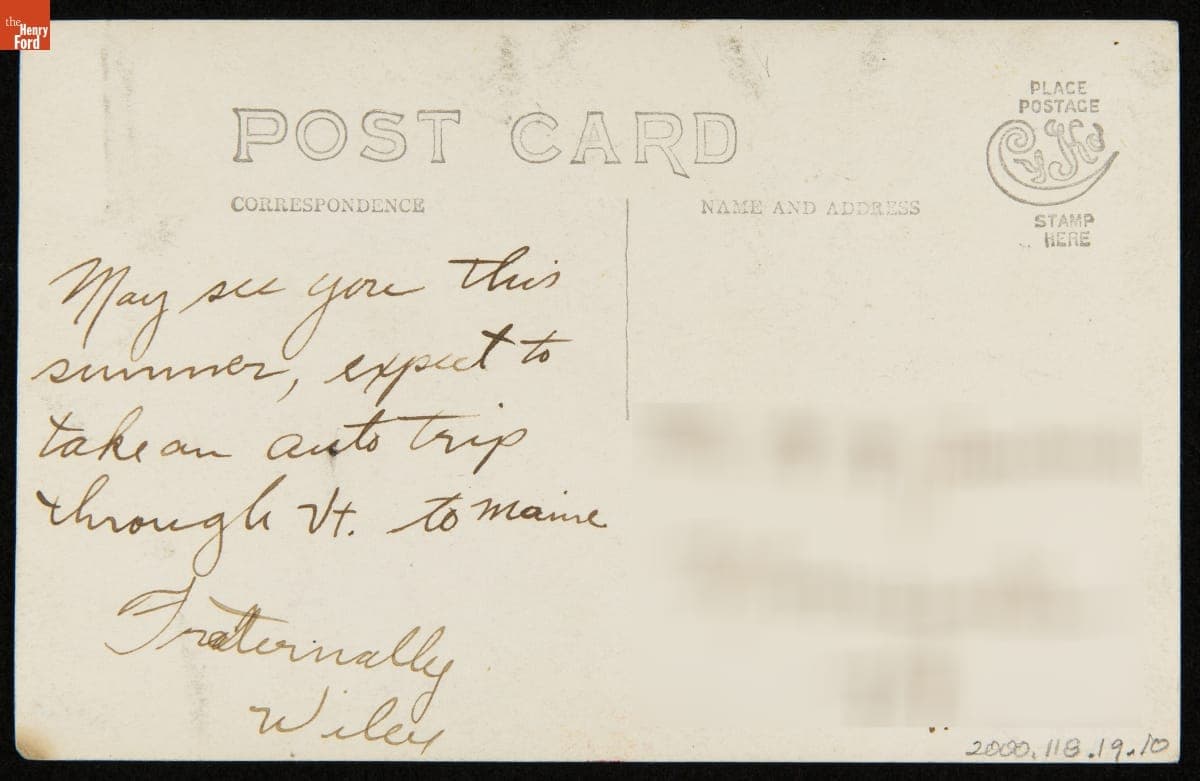 the
Henry
Ford
POST CARD
PLACE
POSTAGE
CyKo
STAMP
HERE
CORRESPONDENCE
NAME AND ADDRESS
May see you this
summer, expect to
take an auto trip
through Vt. to Maine
Fraternally
Wiley
2000.118.19.10